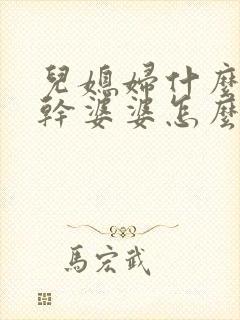 兒媳婦什麼
幹婆婆怎麼
馬宏武